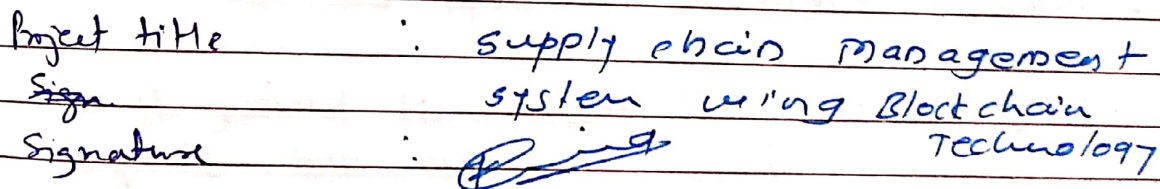 Project title : Supply chain Management
Sign system using Blockchain
Technology
Signature :